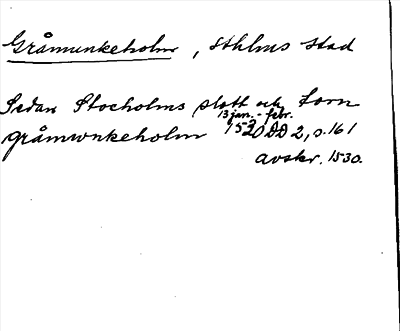 Gråmunkeholm, Sthlms stad
Sedan Stocholms slott och torn
13 jan. - febr.
gråmwnkeholm 1520 DD 2, s. 161
avskr. 1530.